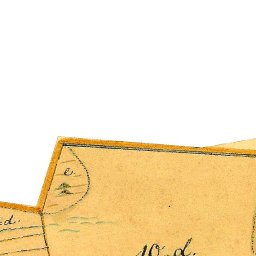 e.
d.
10.d.